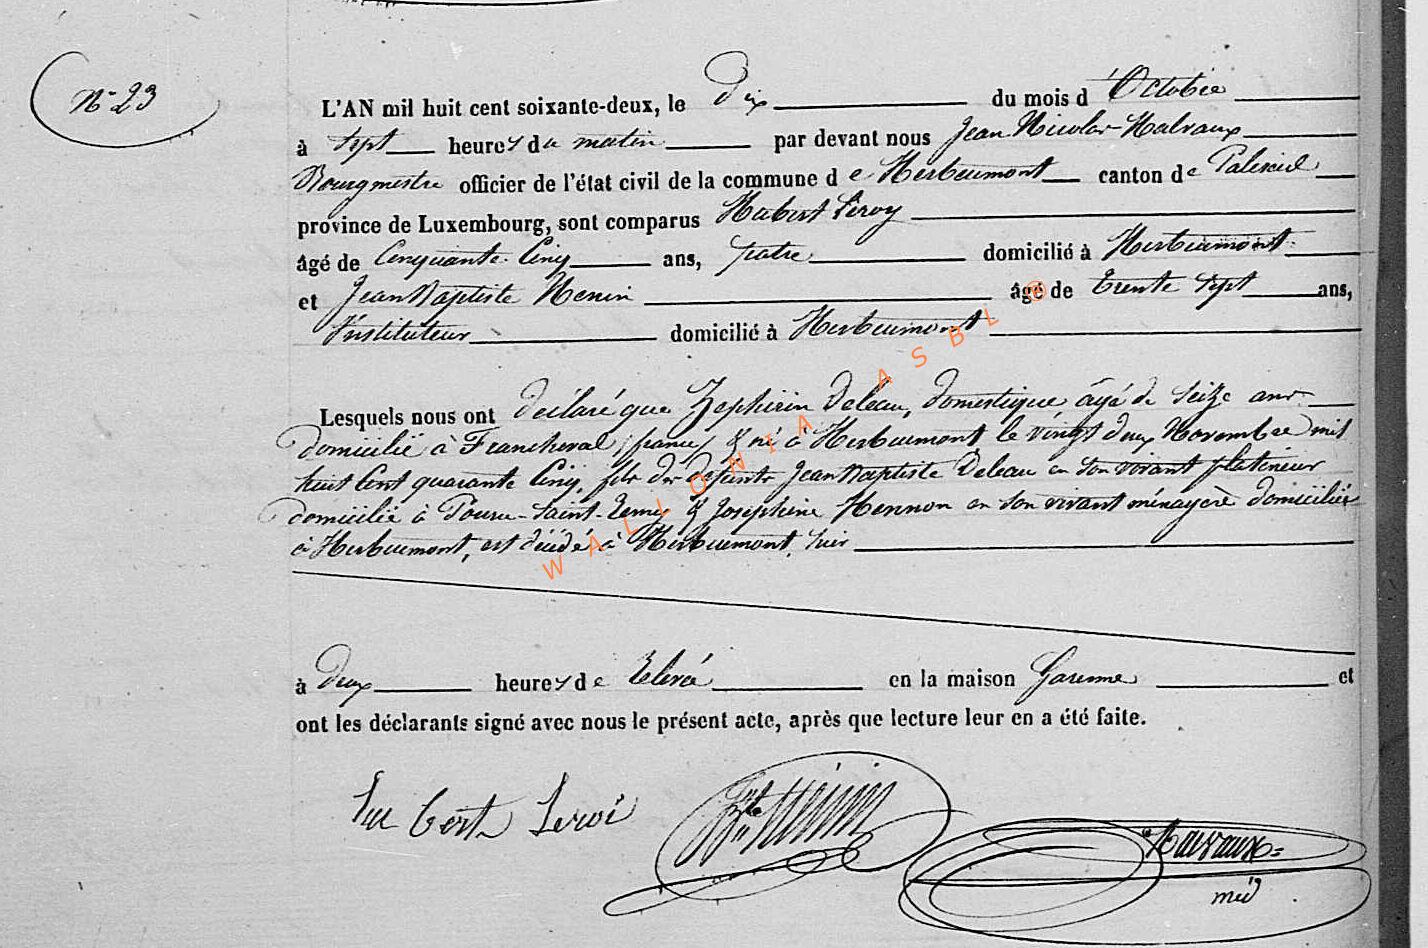 N° 23
L'AN mil huit cent soixante-deux, le Dix du mois d'Octobre
à sept heures du matin par devant nous Jean Nicolas Malvaux
Bourgmestre officier de l'état civil de la commune de Herbeumont canton de Paliseul
province de Luxembourg, sont comparus Hubert Leroy
âgé de Cinquante-Cinq ans, patre domicilié à Herbeumont
et Jean Baptiste Henin âgé de Trente sept ans,
Instituteur domicilié à Herbeumont
Lesquels nous ont déclaré que Zephirin Deleau, domestique âgé de seize ans
domicilié à Francheval (france) & né à Herbeumont le vingt deux Novembre mil
huit Cent quarante Cinq, fils des défunts Jean Baptiste Deleau en son vivant platineur
domicilié à Pouru-Saint-Remy & Joséphine Hennon en son vivant ménagère domiciliée
à Herbeumont, est décédé à Herbeumont, hier
à Deux heures de relevée en la maison Garenne et
ont les déclarants signé avec nous le présent acte, après que lecture leur en a été faite.
Hu bert Leroi
Bte Hénin
Malvaux
WALLONIA ASBL ©